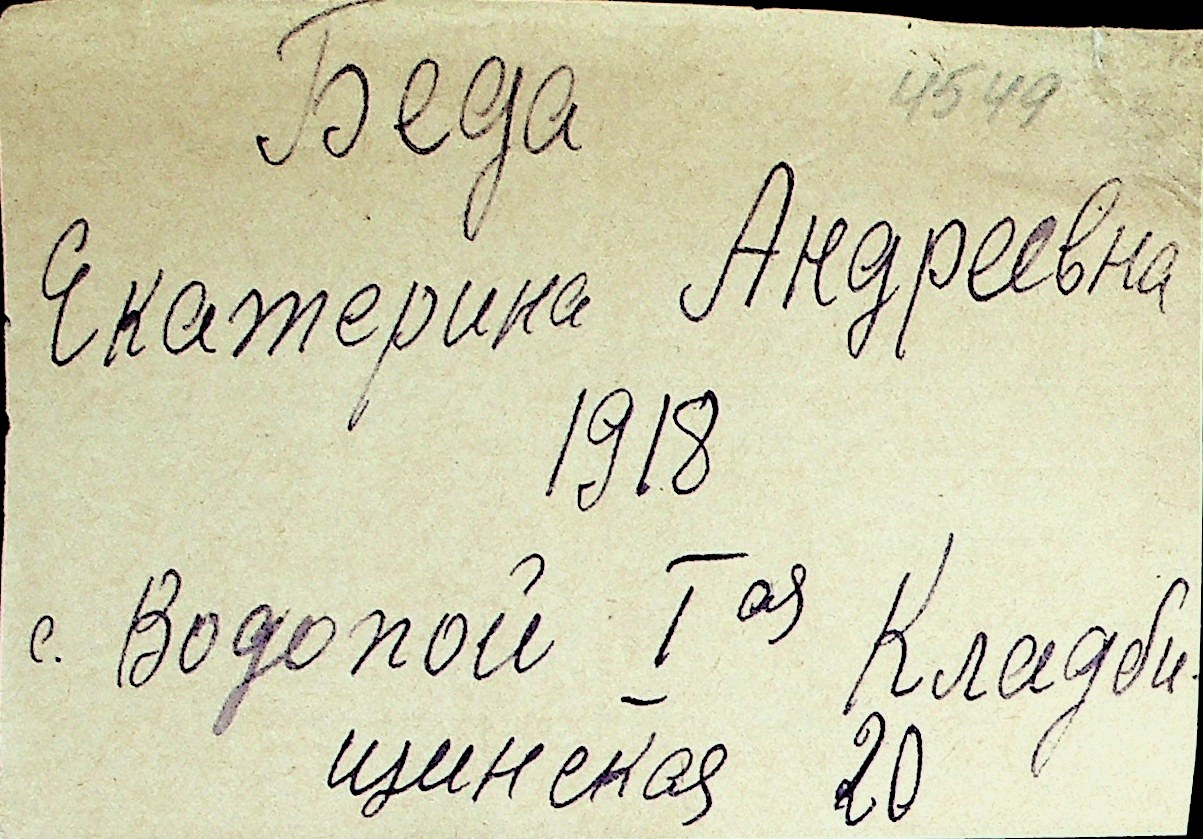 4549
Беда
Екатерина Андреевна
1918
с. Водопой I ая Кладби-
щинская 20